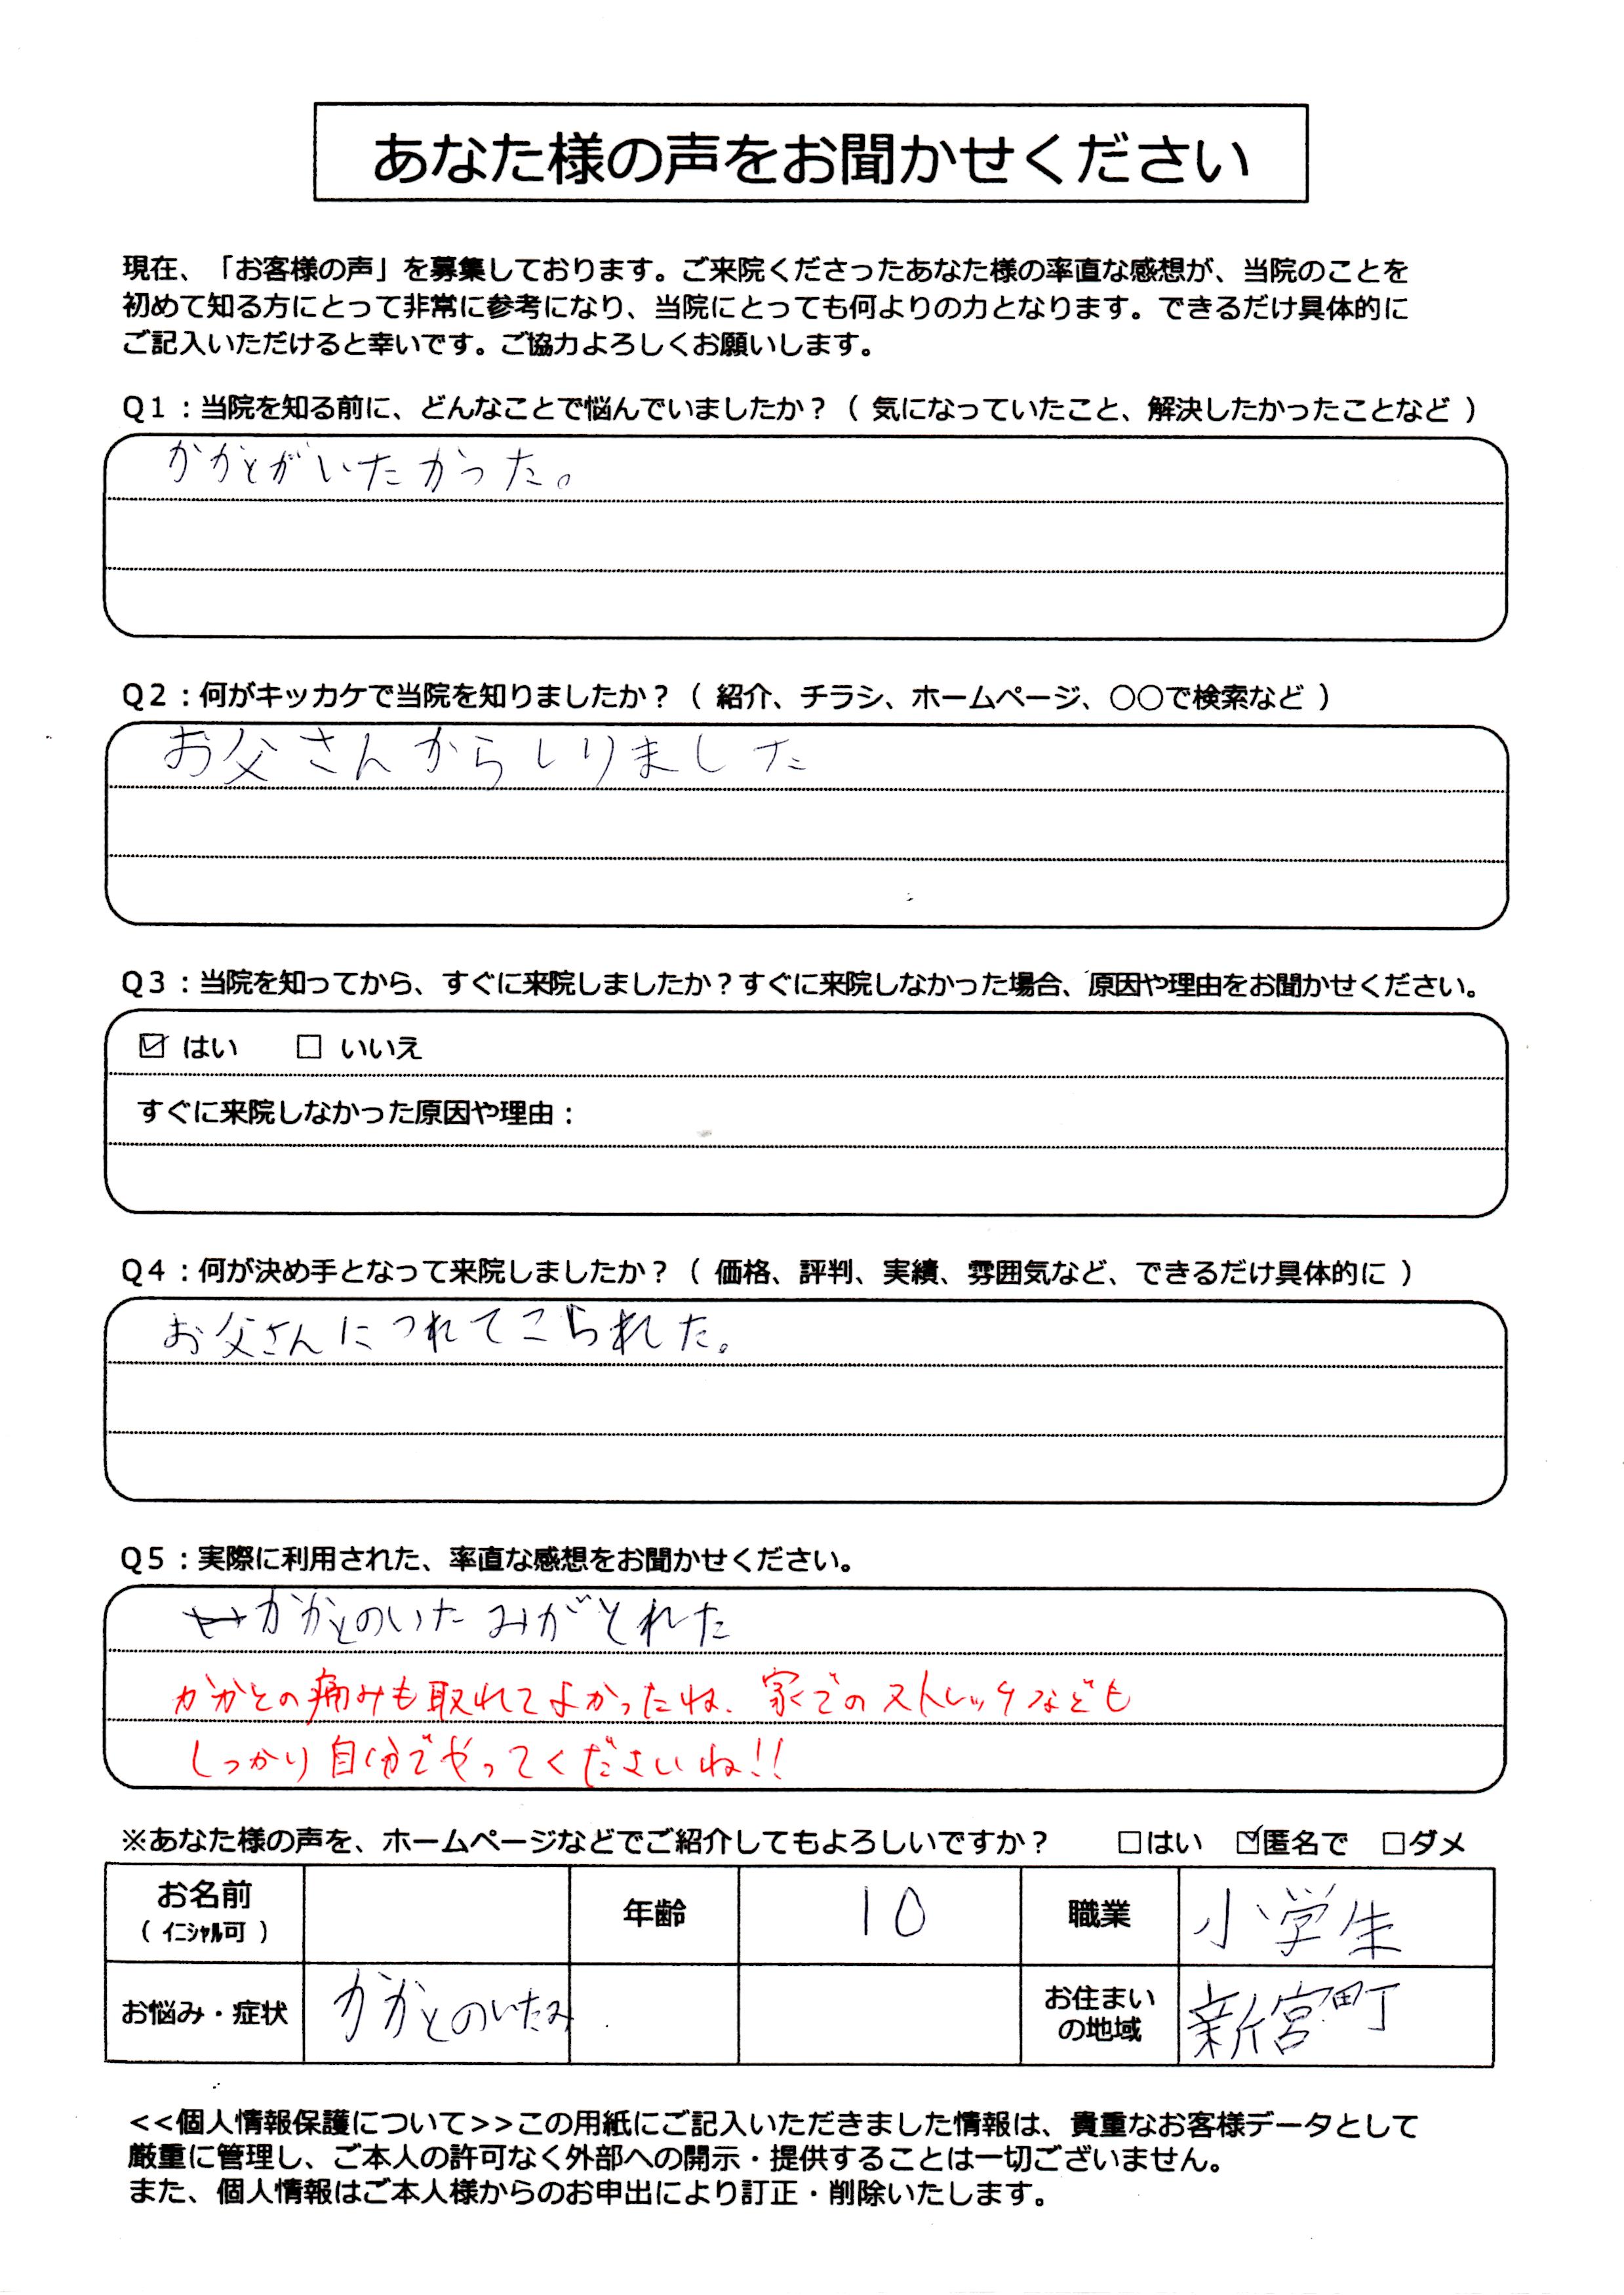 あなた様の声をお聞かせください
現在、「お客様の声」を募集しております。ご来院くださったあなた様の率直な感想が、当院のことを
初めて知る方にとって非常に参考になり、当院にとっても何よりの力となります。できるだけ具体的に
ご記入いただけると幸いです。ご協力よろしくお願いします。
Q1：当院を知る前に、どんなことで悩んでいましたか？（ 気になっていたこと、解決したかったことなど ）
かかとがいたかった。
Q2：何がキッカケで当院を知りましたか？（ 紹介、チラシ、ホームページ、○○で検索など ）
お父さんからしりました
Q3：当院を知ってから、すぐに来院しましたか？すぐに来院しなかった場合、原因や理由をお聞かせください。
☑ はい　□ いいえ
すぐに来院しなかった原因や理由：
Q4：何が決め手となって来院しましたか？（ 価格、評判、実績、雰囲気など、できるだけ具体的に ）
お父さんにつれてこられた。
Q5：実際に利用された、率直な感想をお聞かせください。
かかとのいたみがとれた
かかとの痛みも取れてよかったね、家でのストレッチなども
しっかり自分でやってくださいね!!
※あなた様の声を、ホームページなどでご紹介してもよろしいですか？　□はい　☑匿名で　□ダメ
お名前　年齢　10　職業　小学生
（ イニシャル可 ）
お悩み・症状　かかとのいたみ　お住まいの地域　新宮町
<<個人情報保護について>>この用紙にご記入いただきました情報は、貴重なお客様データとして
厳重に管理し、ご本人の許可なく外部への開示・提供することは一切ございません。
また、個人情報はご本人様からのお申出により訂正・削除いたします。